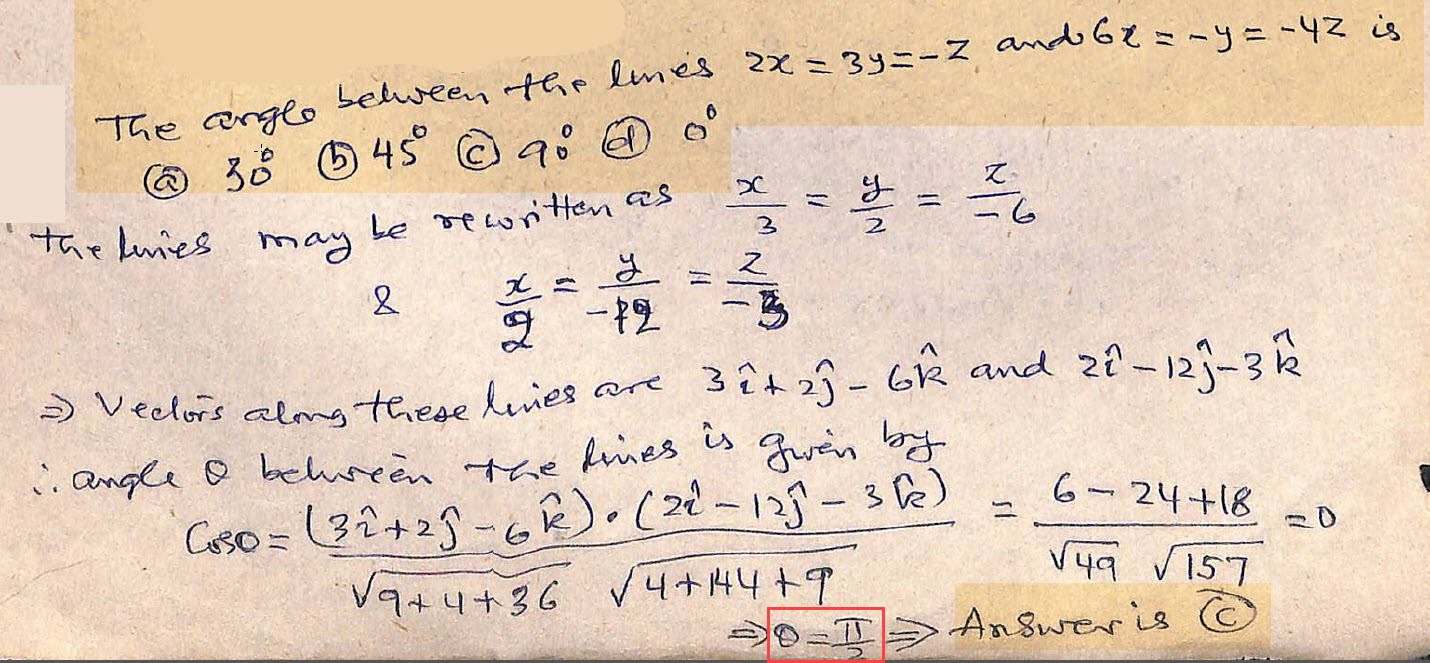 The angle between the lines 2x = 3y = -z and 6x = -y = -4z is
(a) 30° (b) 45° (c) 90° (d) 0°
The lines may be rewritten as x/3 = y/2 = z/-6
& x/2 = y/-12 = z/-3
⇒ Vectors along these lines are 3î + 2ĵ - 6k̂ and 2î - 12ĵ - 3k̂
∴ angle θ between the lines is given by
Cosθ = (3î + 2ĵ - 6k̂) . (2î - 12ĵ - 3k̂) / √9+4+36 √4+144+9 = 6 - 24 + 18 / √49 √157 = 0
⇒ θ = π/2 ⇒ Answer is (c)